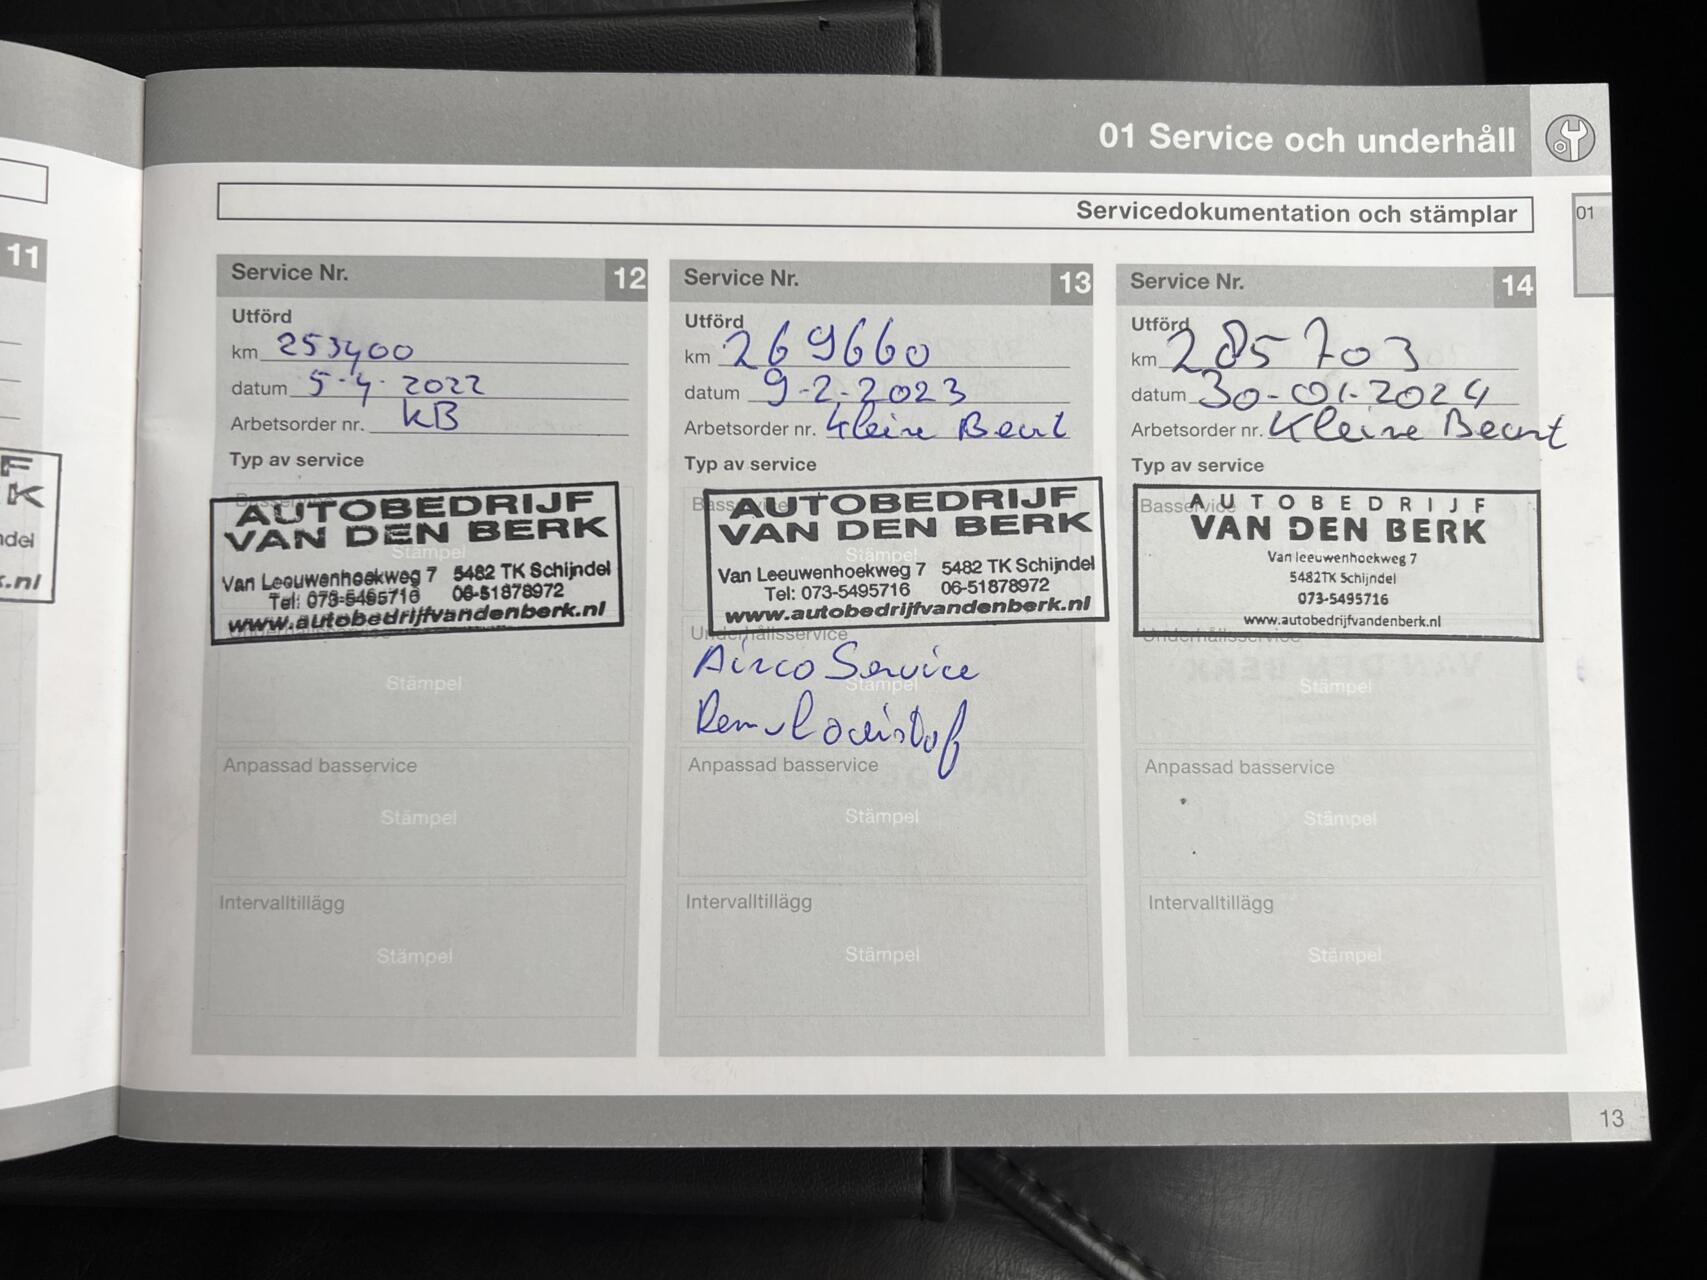 01 Service och underhåll
Servicedokumentation och stämplar
01
11
F
K
ndel
k.nl
Service Nr. 12
Utförd
km 253400
datum 5-4-2022
Arbetsorder nr. KB
Typ av service
Basservice
AUTOBEDRIJF
VAN DEN BERK
Stämpel
Van Leeuwenhoekweg 7 5482 TK Schijndel
Tel: 073-5495716 06-51878972
www.autobedrijfvandenberk.nl
Underhållsservice
Stämpel
Anpassad basservice
Stämpel
Intervalltillägg
Stämpel
Service Nr. 13
Utförd
km 269660
datum 9-2-2023
Arbetsorder nr. Kleine Beurt
Typ av service
Basservice
AUTOBEDRIJF
VAN DEN BERK
Stämpel
Van Leeuwenhoekweg 7 5482 TK Schijndel
Tel: 073-5495716 06-51878972
www.autobedrijfvandenberk.nl
Underhållsservice
Airco Service
Stämpel
Remvloeistof
Anpassad basservice
Stämpel
Intervalltillägg
Stämpel
Service Nr. 14
Utförd
km 285703
datum 30-01-2024
Arbetsorder nr. Kleine Beurt
Typ av service
Basservice
AUTOBEDRIJF
VAN DEN BERK
Van leeuwenhoekweg 7
5482TK Schijndel
073-5495716
www.autobedrijfvandenberk.nl
Underhållsservice
Stämpel
Anpassad basservice
Stämpel
Intervalltillägg
Stämpel
13